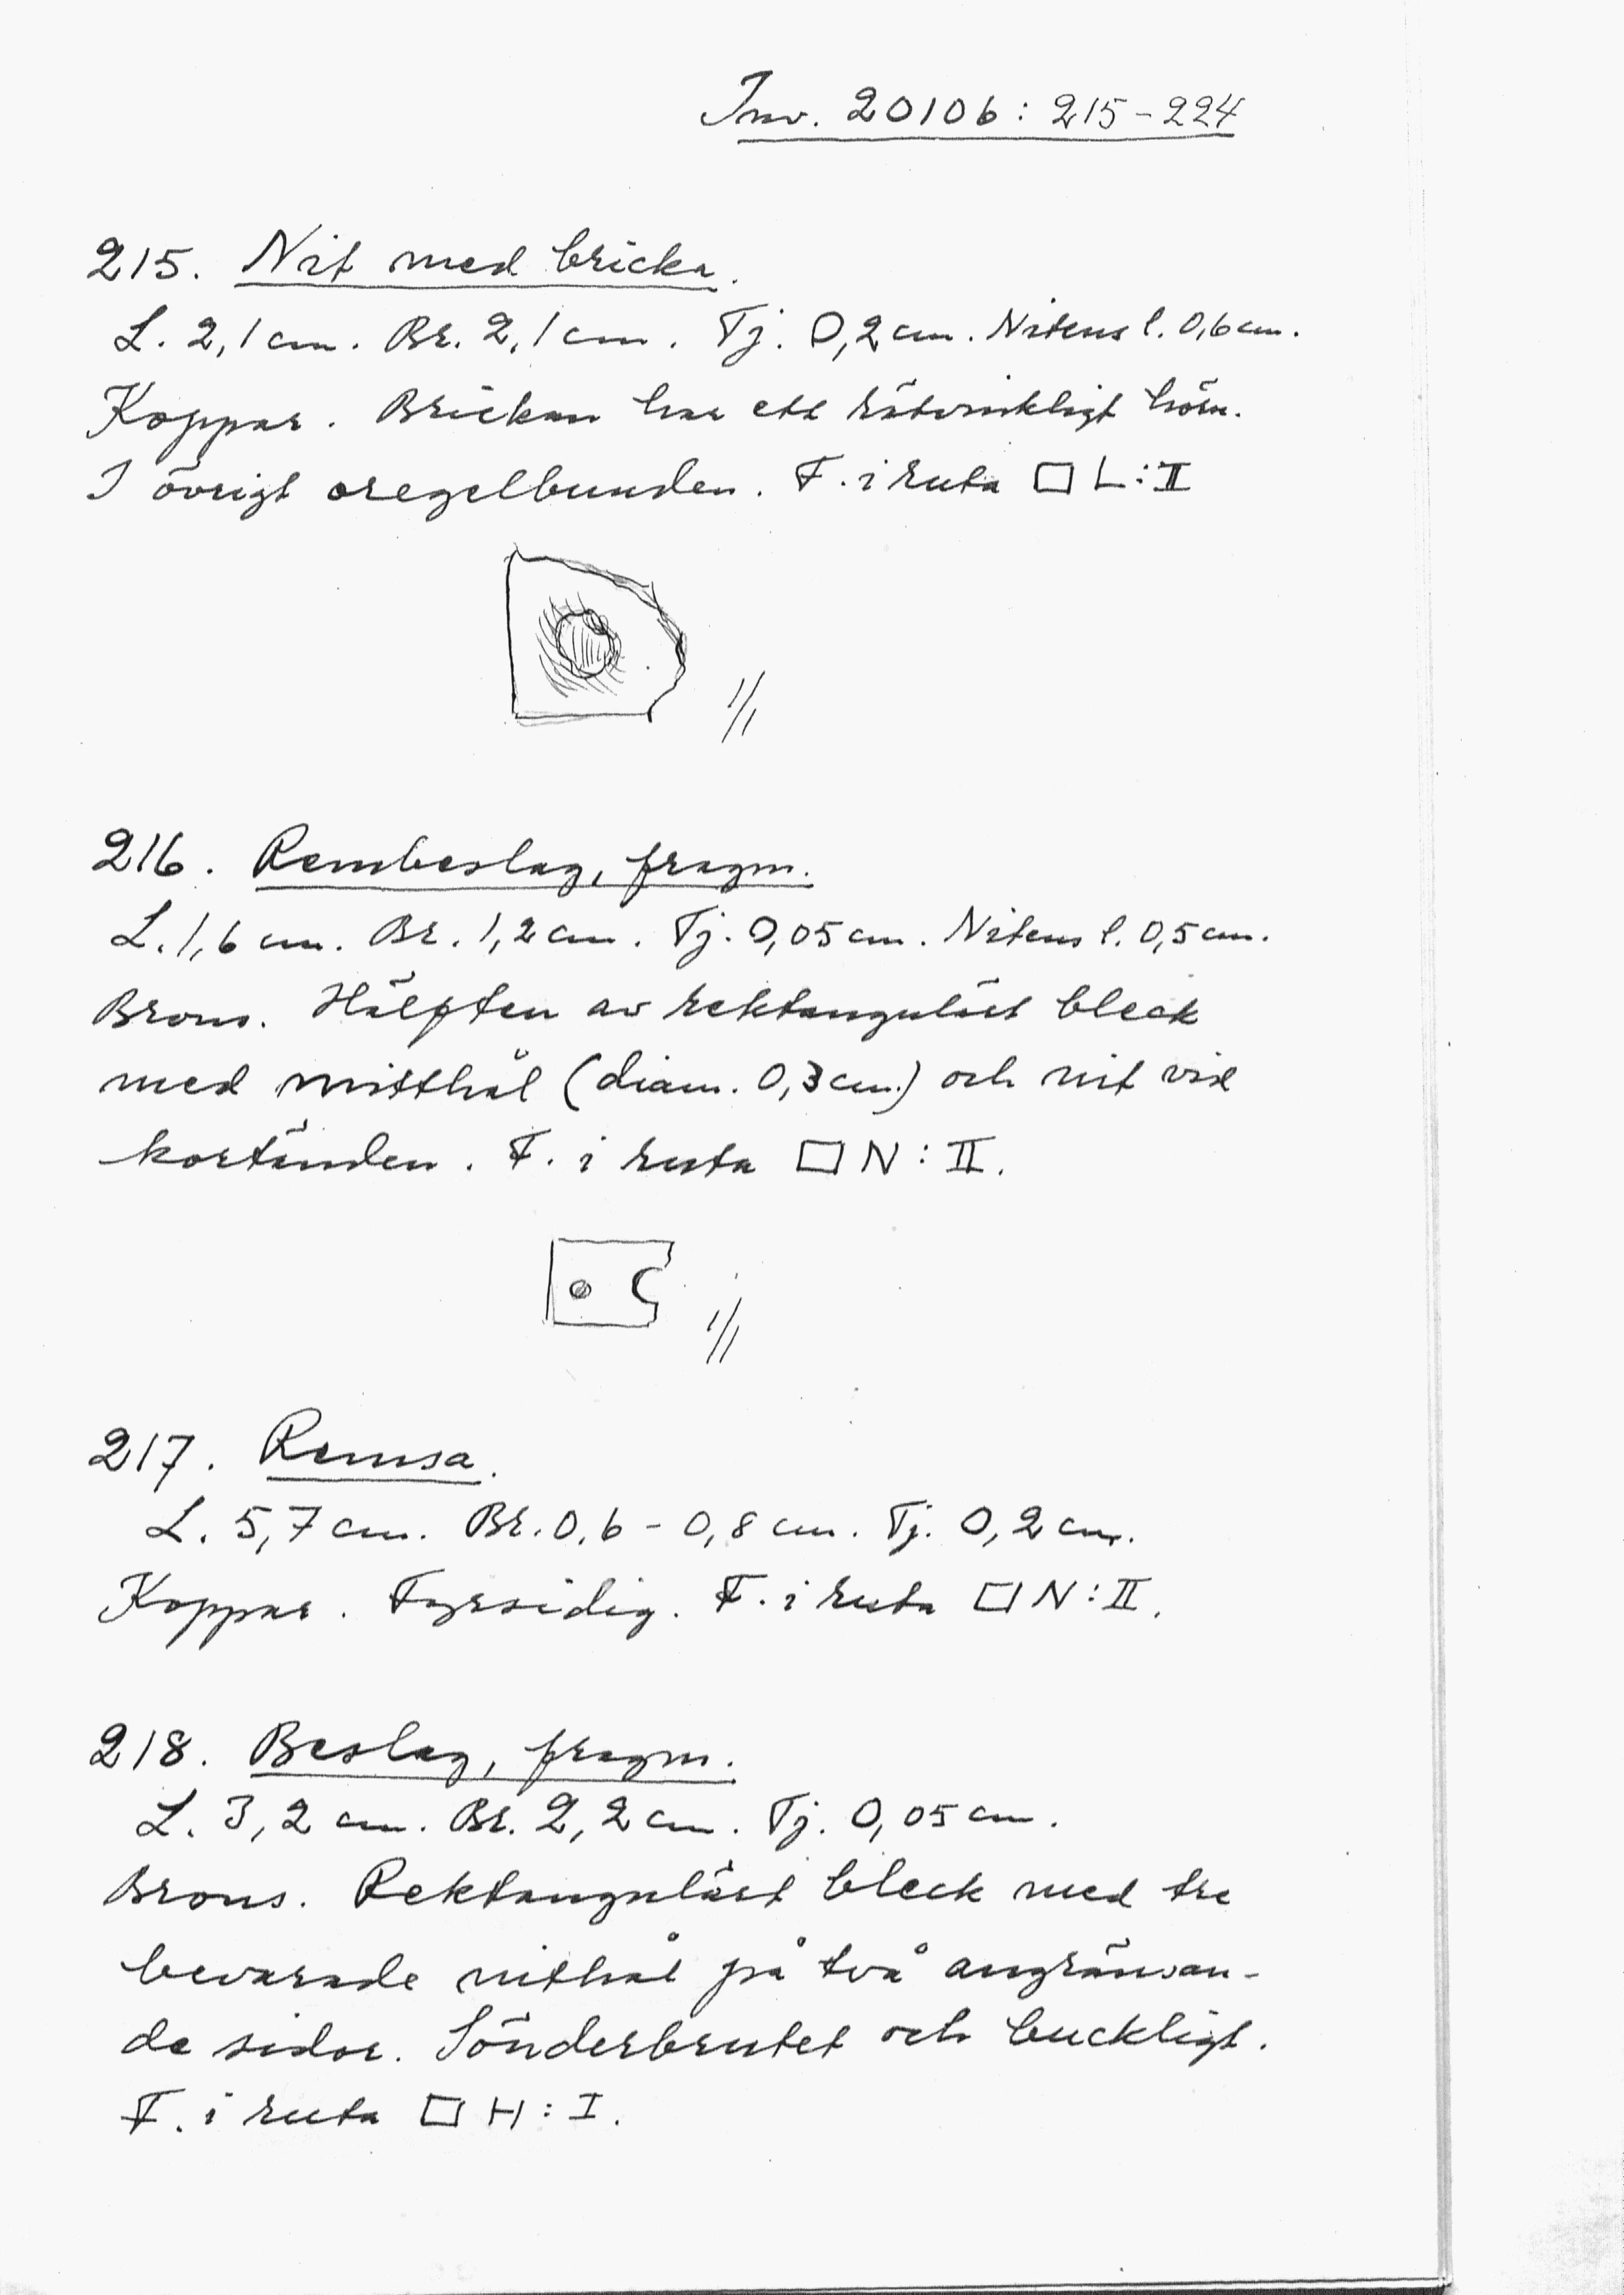 Inv. 20106: 215-224
215. Nit med bricka.
L. 2,1 cm. Br. 2,1 cm. Tj. 0,2 cm. Nitens l. 0,6 cm.
Koppar. Brickan har ett rätvinkligt hörn.
I övrigt oregelbunden. F. i ruta □ L:II
1/1
216. Rembeslag, fragm.
L. 1,6 cm. Br. 1,2 cm. Tj. 0,05 cm. Nitens l. 0,5 cm.
Brons. Hälften av rektangulärt bleck
med mitthål (diam. 0,3 cm.) och nit vid
kortänden. F. i ruta □ N:II.
1/1
217. Remsa.
L. 5,7 cm. Br. 0,6 - 0,8 cm. Tj. 0,2 cm.
Koppar. Fyrsidig. F. i ruta □ N:II.
218. Beslag, fragm.
L. 3,2 cm. Br. 2,2 cm. Tj. 0,05 cm.
Brons. Rektangulärt bleck med tre
bevarade nithål på två angränsan-
de sidor. Sönderbrutet och buckligt.
F. i ruta □ H:I.